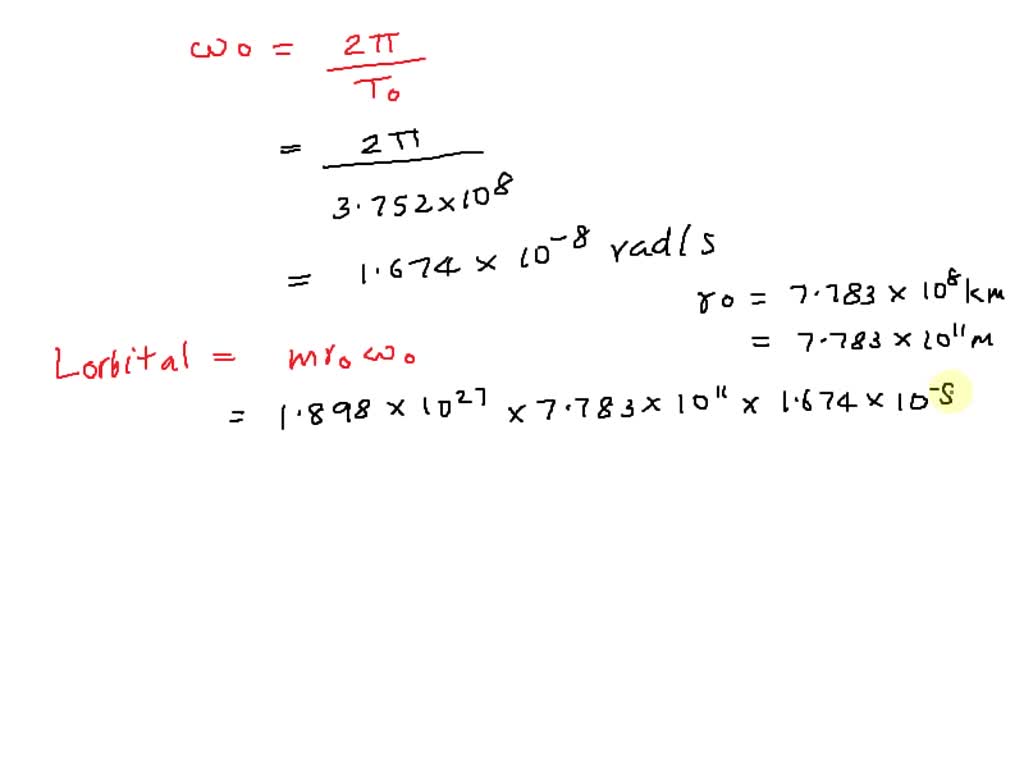 ω0 = 2π / T0
= 2π / 3.752×10^8
= 1.674 × 10^-8 rad/s
r0 = 7.783 × 10^8 km
= 7.783 × 10^11 m
Lorbital = mr0ω0
= 1.898 × 10^27 × 7.783 × 10^11 × 1.674 × 10^-8